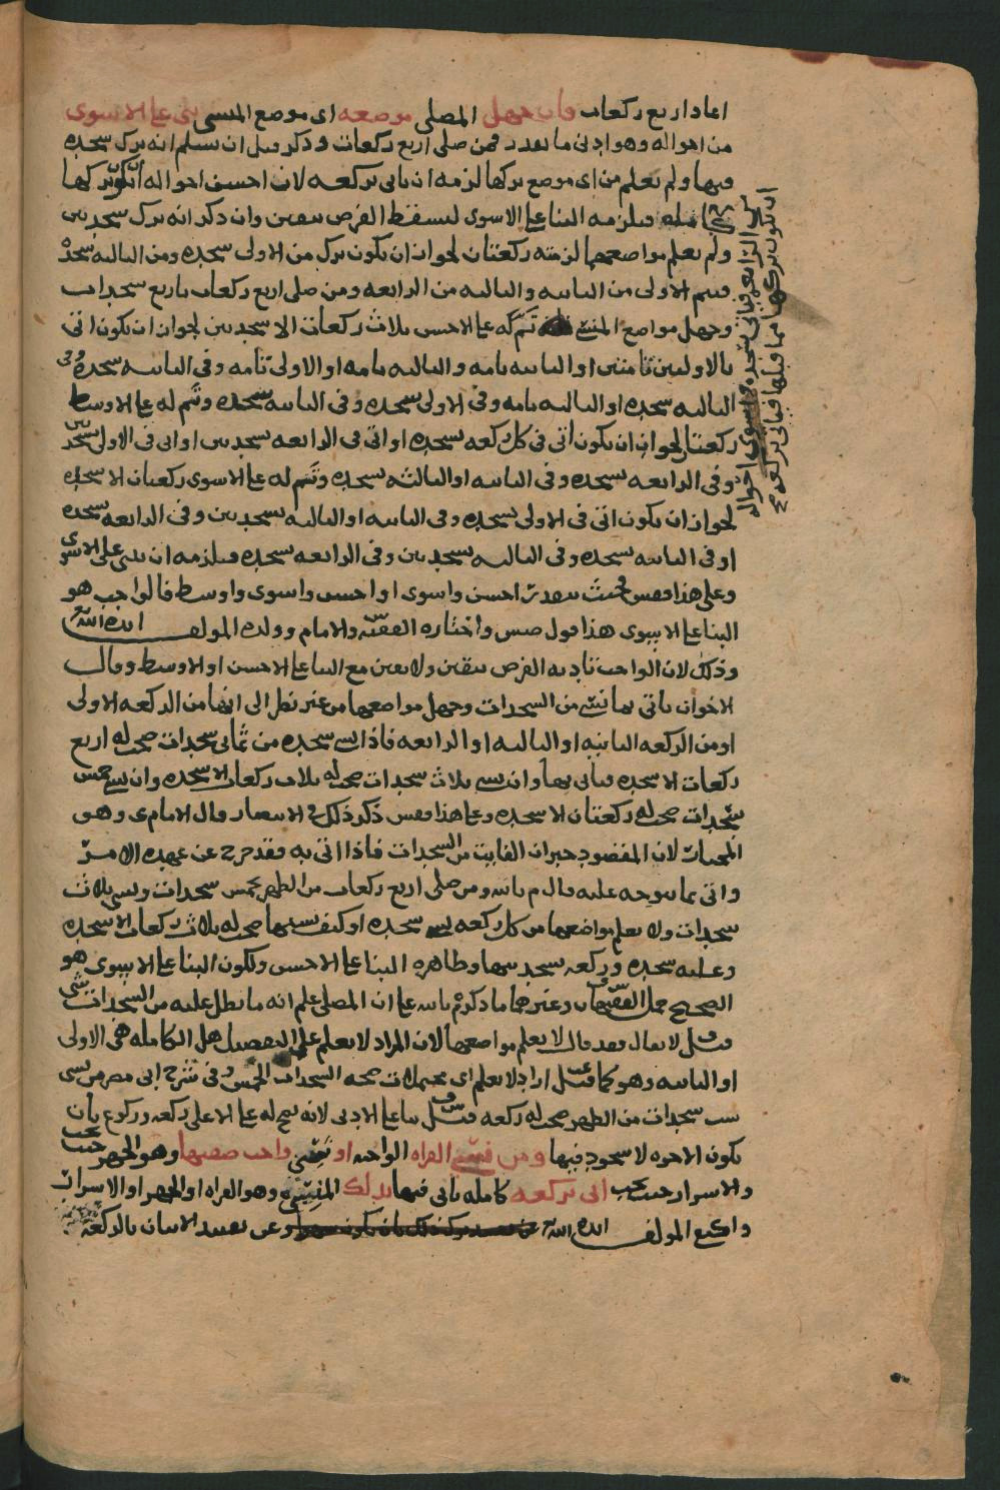 اعاد اربع ركعات فان جهل المصلى موضعه اى موضع المنسى بنى على الاسوى
من احواله وهو ادنى ما يقدر فمن صلى اربع ركعات وذكر قبل ان يسلم انه ترك سجده
فيها ولم يعلم من اى موضع تركها لزمه ان ياتى بركعه لان احسن احواله ان يكون تركها
فيلزمه البنا على الاسوى ليسقط الفرض بيقين وان ذكر انه ترك سجدتين
ولم يعلم مواضعهما لزمته ركعتان لجواز ان يكون ترك من الاولى سجده ومن الثالثه سجده
فيتم الاولى من الثانيه والثالثه من الرابعه ومن صلى اربع ركعات باربع سجدات
وجهل مواضع المنسى تم له على الاحسن ثلاث ركعات الا سجدتين لجواز ان يكون اتى
بالاولتين تامتين او الثانيه تامه والثالثه تامه او الاولى تامه وفى الثانيه سجده وفى
الثالثه سجده او الثالثه تامه وفى الاولى سجده وفى الثانيه سجده وتم له على الاوسط
ركعتان لجواز ان يكون اتى فى كل ركعه سجده او اتى فى الرابعه سجدتين او اتى فى الاولى سجدتين
وفى الرابعه سجده وفى الثانيه او الثالثه سجده وتم له على الاسوى ركعتان الا سجده
لجواز ان يكون اتى فى الاولى سجده وفى الثانيه او الثالثه سجدتين وفى الرابعه سجده
او فى الثانيه سجده وفى الثالثه سجدتين وفى الرابعه سجده فيلزمه ان يبنى على الاسوى
وعلى هذا فقس فحيث يقدر احسن واسوى او احسن واسوى واوسط فالواجب هو
البنا على الاسوى هذا قول واختاره الفقيه والامام وولده المولف ايده الله
وذلك لان الواجب تاديه الفرض بيقين ولا يقين مع البنا على الاحسن او الاوسط وقال
الاخوان ياتى بما نسى من السجدات وجهل مواضعها من غير نظر الى انها من الركعه الاولى
او من الركعه الثانيه او الثالثه او الرابعه فاذا نسى سجده من ثمانى سجدات صحت له اربع
ركعات الا سجده فياتى بها وان نسى ثلاث سجدات صحت له ثلاث ركعات الا سجده وان نسى خمس
سجدات صحت له ركعتان الا سجده وعلى هذا فقس ذكر ذلك فى الانتصار قال الامام ى وهو
المختار لان المقصود جبران الفايت من السجدات فاذا اتى به فقد خرج عن عهده الامر
واتى بما يتوجه عليه قال م بالله ومن صلى اربع ركعات من الظهر بخمس سجدات ونسى ثلاث
سجدات ولا يعلم مواضعها من كل ركعه نسى سجده او كيف نسيها صحت له ثلاث ركعات الا سجده
وعليه سجده وركعه بسجدتيها وظاهره البنا على الاحسن ولكون البنا على الاسوى هو
الصحيح حمل الفقيهان وغيرهما ما ذكره م بالله على ان المصلى علم انه ما بطل عليه من السجدات شى
قيل لا يقال فقد قال لا يعلم مواضعها لان المراد لا يعلم على التفصيل هل الكامله هى الاولى
او الثانيه وهو كما قيل اراد لا يعلم اى محتملات صحه السجدات الخمس وفى شرح ابى مضر من نسى
ست سجدات من الظهر صحت له ركعه قيل بنا على الادنى لانه يصح له على الاعلى ركعه وركوع بان
تكون الاخره لا سجود فيها ومن نسى القراه الواجبه او نسى واجب صفتها وهو الجهر حيث يجب
والاسرار حيث يجب اتى بركعه كامله ياتى فيها بذلك المنسى وهو القراه او الجهر او الاسرار
المولف ايده الله وعن تقييد الاتيان بالركعه